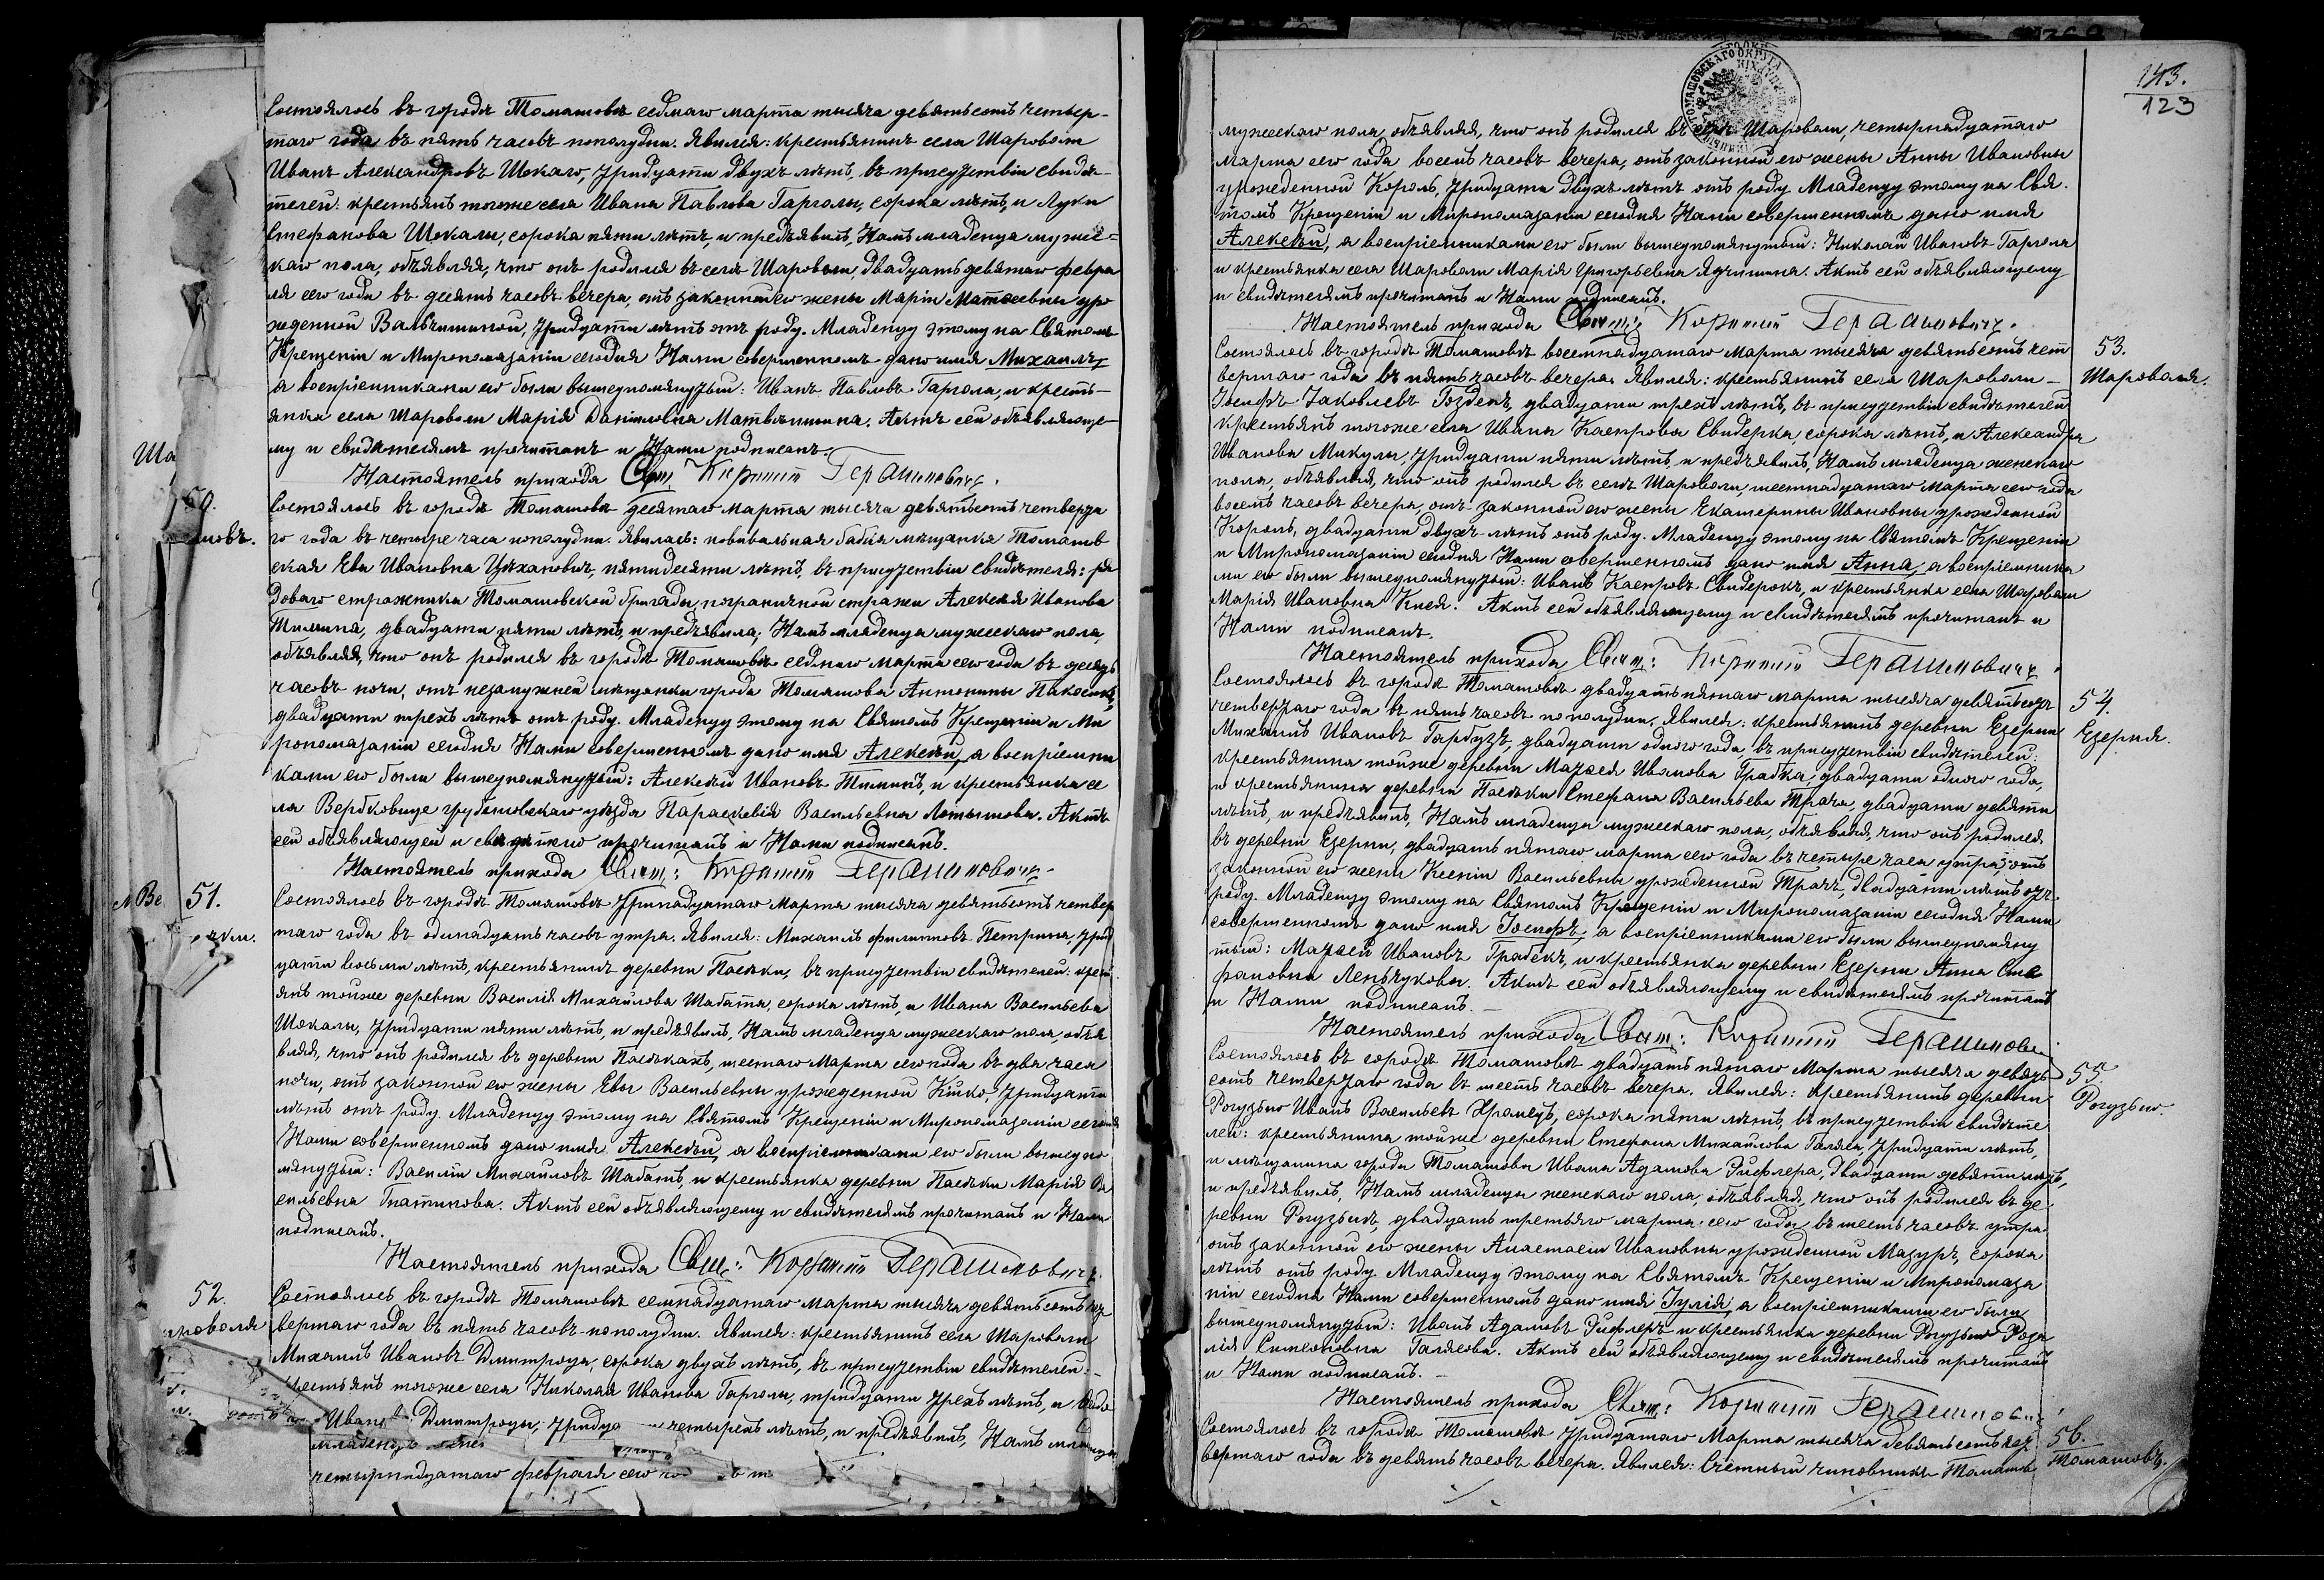 Состоялось въ городѣ Томашовѣ седмаго марта тысяча девятьсотъ четвер-
таго года въ пять часовъ пополудни. Явился: крестьянинъ села Шароволи
Иванъ Александровъ Шокало, тридцати двухъ лѣтъ, въ присутствіи свидѣ-
телей: крестьянъ тогоже села Ивана Павлова Гарголы, сорока лѣтъ, и Луки
Стефанова Шокалы, сорока пяти лѣтъ, и предъявилъ, Намъ младенца мужес-
каго пола, объявляя, что онъ родился въ селѣ Шароволи двадцать девятаго февра
ля сего года въ десять часовъ вечера, отъ законной его жены Маріи Матѳеевны уро
жденной Вальчишиной, тридцати лѣтъ отъ роду. Младенцу этому на Святомъ
Крещеніи и Мѵропомазаніи сегодня Нами совершенномъ дано имя Михаилъ,
а воспріемниками его были вышеупомянутый: Иванъ Павловъ Гаргола, и кресть-
янка села Шароволи Марія Даніиловна Матвѣишина. Актъ сей объявляюще-
му и свидѣтелямъ прочитанъ и Нами подписанъ.
Настоятель прихода Свящ. Корнилій Герашиновичъ.
Ша
50.
шовъ.
Состоялось въ городѣ Томашовѣ десятаго марта тысяча девятьсотъ четверта
го года въ четыре часа пополудни. Явилась: повивальная бабка мѣщанка Томашов
ская Ева Ивановна Цѣхановичъ, пятидесяти лѣтъ, въ присутствіи свидѣтеля: ря
доваго стражника Томашовской бригады, пограничной стражи Алексѣя Иванова
Тишина, двадцати пяти лѣтъ, и предъявила, Намъ младенца мужескаго пола,
объявляя, что онъ родился въ городѣ Томашовѣ седмаго марта сего года въ десять
часовъ ночи, отъ незамужней мѣщанки города Томашова Антонины
двадцати трехъ лѣтъ отъ роду. Младенцу этому на Святомъ Крещеніи и Мѵ
ропомазаніи сегодня Нами совершенномъ дано имя Алексѣй, а воспріемни
ками его были вышеупомянутый: Алексѣй Ивановъ Тишинъ, и крестьянка се
ла Вербковице грубешовскаго уѣзда Параскевія Васильевна Латышова. Актъ
сей объявляющей и прочитанъ и Нами подписанъ.
Настоятель прихода Свящ: Корнилій Герашиновичъ.
51.
Состоялось въ городѣ Томашовѣ тринадцатаго марта тысяча девятьсотъ четвер
таго года въ одинадцать часовъ утра. Явился: Михаилъ Филипповъ Петрина, трид
цати восьми лѣтъ, крестьянинъ деревни Пасѣки, въ присутствіи свидѣтелей: крест
янъ тойже деревни Василія Михайлова Шабата, сорока лѣтъ, и Ивана Васильева
Шокалы, тридцати пяти лѣтъ, и предъявилъ, Намъ младенца мужескаго пола, объя
вляя, что онъ родился въ деревни Пасѣкахъ, шестаго марта сего года въ два часа
ночи, отъ законной его жены Евы Васильевны урожденной Кішко, тридцати
лѣтъ отъ роду. Младенцу этому на Святомъ Крещеніи и Мѵропомазаніи сегодня
Нами совершенномъ дано имя Алексѣй, а воспріемниками его были вышеупо
мянутый: Василій Михайловъ Шабатъ, и крестьянка деревни Пасѣки Марія Ва
сильевна Гнатикова. Актъ сей объявляющему и свидѣтелямъ прочитанъ и Нами
подписанъ.
Настоятель прихода Свящ: Корнилій Герашиновичъ.
52.
ароволя
Состоялось въ городѣ Томашовѣ семнадцатаго марта тысяча девятьсотъ чет
вертаго года въ пять часовъ пополудни. Явился: крестьянинъ села Шароволи
Михаилъ Ивановъ Дмитроца, сорока двухъ лѣтъ, въ присутствіи свидѣтелей:
крестьянъ тогоже села Николая Иванова Гарголы, тридцати трехъ лѣтъ, и
Ивано Дмитроцы, тридца четырехъ лѣтъ, и предъявилъ, Намъ младенца
четырнадцатаго февраля сего
143.
123
мужескаго пола, объявляя, что онъ родился въ селѣ Шароволи, четырнадцатаго
марта сего года восемь часовъ вечера, отъ законной его жены Анны Ивановны
урожденной Король, тридцати двухъ лѣтъ отъ роду. Младенцу этому на Свя-
томъ Крещеніи и Мѵропомазаніи сегодня Нами совершенномъ дано имя
Алексѣй, а воспріемниками его были вышеупомянутый: Николай Ивановъ Гаргола
и крестьянка села Шароволи Марія Григорьевна Ядчишина. Актъ сей объявляющему
и свидѣтелямъ прочитанъ и Нами подписанъ.
Настоятель прихода Свящ: Корнилій Герашиновичъ.
53.
Шароволя.
Состоялось въ городѣ Томашовѣ восемнадцатаго марта тысяча девятьсотъ чет
вертаго года въ пять часовъ вечера. Явился: крестьянинъ села Шароволи
Іосифъ Іаковлевъ Гозденъ, двадцати трехъ лѣтъ, въ присутствіи свидѣтелей
крестьянъ тогоже села Ивана Каспрова Свидерка, сорока лѣтъ, и Александра
Иванова Микулы, тридцати пяти лѣтъ, и предъявилъ, Намъ младенца женскаго
пола, объявляя, что онъ родился въ селѣ Шароволи, шестнадцатаго марта сего года
восемь часовъ вечера, отъ законной его жены Екатерины Ивановны урожденной
Король, двадцати двухъ лѣтъ отъ роду. Младенцу этому на Святомъ Крещеніи
и Мѵропомазаніи сегодня Нами совершенномъ дано имя Анна, а воспріемника
ми его были вышеупомянутый: Иванъ Каспровъ Свидерокъ, и крестьянка села Шароволи
Марія Ивановна Кнея. Актъ сей объявляющему и свидѣтелямъ прочитанъ и
Нами подписанъ.
Настоятель прихода Свящ: Корнилій Герашиновичъ.
54.
Езерня.
Состоялось въ городѣ Томашовѣ двадцать пятаго марта тысяча девятьсотъ
четвертаго года въ пять часовъ пополудни. Явился: крестьянинъ деревни Езерни
Михаилъ Ивановъ Гарбузъ, двадцати одного года, въ присутствіи свидѣтелей:
крестьянина тойже деревни Матѳея Иванова Грабка, двадцати одного года,
и крестьянина деревни Пасѣки Стефана Васильева Трача, двадцати девяти
лѣтъ, и предъявилъ, Намъ младенца мужескаго пола, объявляя, что онъ родился
въ деревни Езерни, двадцать пятаго марта сего года въ четыре часа утра, отъ
законной его жены Ксеніи Васильевны урожденной Трачъ, двадцати лѣтъ отъ
роду. Младенцу этому на Святомъ Крещеніи и Мѵропомазаніи сегодня Нами
совершенномъ дано имя Іосифъ, а воспріемниками его были вышеупомяну
тый: Матѳей Ивановъ Грабекъ, и крестьянка деревни Езерни Анна Сте
фановна Леньчукова. Актъ сей объявляющему и свидѣтелямъ прочитанъ
и Нами подписанъ.
Настоятель прихода Свящ: Корнилій Герашинович
55.
Рогузьно.
Состоялось въ городѣ Томашовѣ двадцать пятаго марта тысяча девять
сотъ четвертаго года въ шесть часовъ вечера. Явился: крестьянинъ деревни
Рогузьно Иванъ Васильевъ Храмецъ, сорока пяти лѣтъ, въ присутствіи свидѣте
лей: крестьянина тойже деревни Стефана Михайлова Галяса, тридцати лѣтъ,
и мѣщанина города Томашова Ивана Адамова Эйфлера, двадцати девяти лѣтъ,
и предъявилъ, Намъ младенца женскаго пола, объявляя, что онъ родился въ де
ревни Рогузьнѣ, двадцать третьяго марта сего года, въ шесть часовъ утра
отъ законной его жены Анастасіи Ивановны урожденной Мазуръ, сорока
лѣтъ отъ роду. Младенцу этому на Святомъ Крещеніи и Мѵропомаза
ніи сегодня Нами совершенномъ дано имя Іулія, а воспріемниками его были
вышеупомянутый: Иванъ Адамовъ Эйфлеръ и крестьянка деревни Рогузьно Роза
лія Симеоновна Галясова. Актъ сей объявляющему и свидѣтелямъ прочитанъ
и Нами подписанъ.
Настоятель прихода Свящ: Корнилій Герашинович
56.
Томашовъ.
Состоялось въ городѣ Томашовѣ тридцатаго марта тысяча девятьсотъ чет
вертаго года въ девять часовъ вечера. Явился: Счетный чиновникъ Томашов